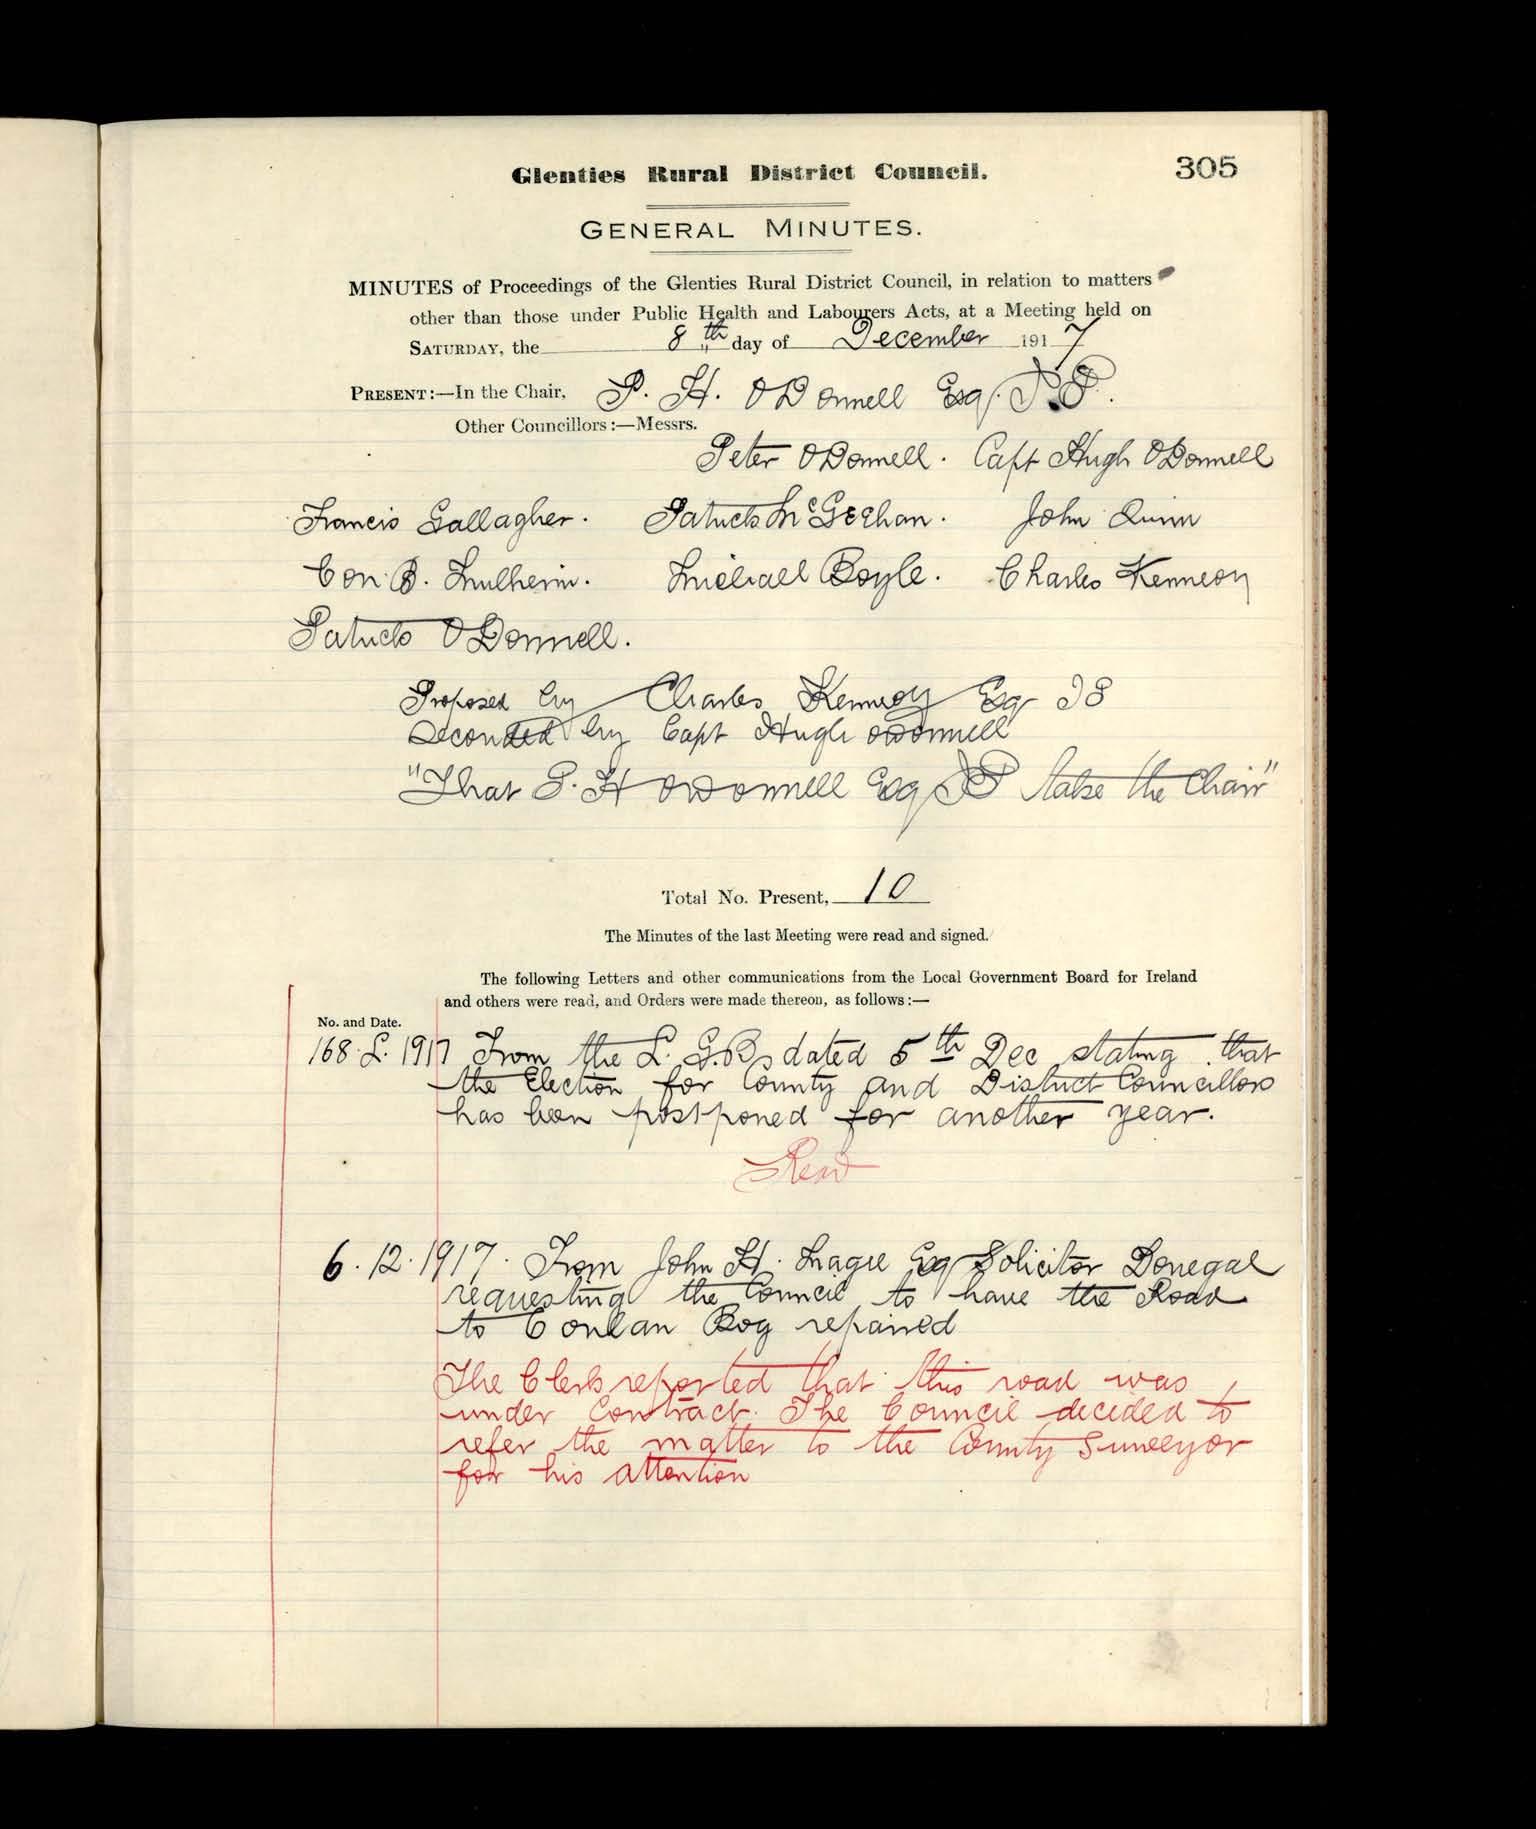 Glenties Rural District Council.
305
GENERAL MINUTES.
MINUTES of Proceedings of the Glenties Rural District Council, in relation to matters
other than those under Public Health and Labourers Acts, at a Meeting held on
SATURDAY, the 8th day of December 1917
PRESENT:—In the Chair, P. H. O'Donnell Esq. J.P.
Other Councillors:—Messrs.
Peter O'Donnell. Capt Hugh O'Donnell
Francis Gallagher. Patrick McGeehan. John Quinn
Con B. Mulhern. Michael Boyle. Charles Kennedy
Patrick O'Donnell.
Proposed by Charles Kennedy Esq JP
Seconded by Capt Hugh O'Donnell
"That P. H O'Donnell Esq JP take the Chair"
Total No. Present, 10
The Minutes of the last Meeting were read and signed.
The following Letters and other communications from the Local Government Board for Ireland
and others were read, and Orders were made thereon, as follows:—
No. and Date.
168. L. 1917 From the L. G.B, dated 5th Dec stating that
the Election for County and District Councillors
has been postponed for another year.
Read
6.12.1917. From John H. Magee Esq Solicitor Donegal
requesting the Council to have the Road
to Conlan Bog repaired
The Clerk reported that this road was
under Contract. The Council decided to
refer the matter to the County Surveyor
for his attention